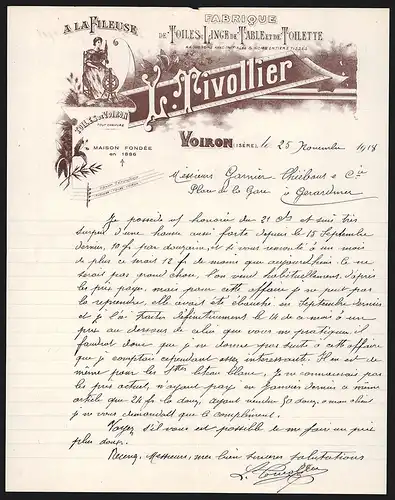 A LA FILEUSE
FABRIQUE
DE TOILES, LINGE DE TABLE ET DE TOILETTE
L. Tivollier
TOILES DE VOIRON
MAISON FONDÉE
en 1886
VOIRON (ISÈRE), le 25 Novembre 1918
Messieurs Garnier Thiébaut & Cie
Place de la Gare à Gerardmer
Je possède v/ honorée du 21 Ct et suis très
surpris d'une hausse aussi forte depuis le 15 Septembre
dernier, 10 f. par douzaine, et si vous remonté à un mois
de plus ce serait 12 f. de moins que aujourd'hui. Ce ne
serait pas grand chose, l'on vend habituellement d'après
les prix payés, mais pour cette affaire je ne peut pas
la reprendre, elle avait été ébauchée en Septembre dernier
et je l'ai traitée définitivement le 14 de ce mois à un
prix au dessous de celui que vous me pratiquez il
faudrait donc que je ne donne pas suite à cette affaire
que je comptais cependant assez intéressante. Il en est de
même pour les blanc, Je ne connaissais pas
les prix actuels, n'ayant payé en Janvier dernier ce même
article que 28 f. la douz. ayant vendu 50 douz. à mon client
je ne vous demandait que le complément.
Voyez s'il vous est possible de me faire un prix
plus doux.
Recevez, Messieurs, mes bien sincères salutations
L. Tivollier